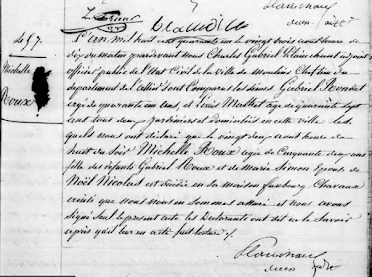 N° 57.
Michelle
Roux
L'an mil huit cent quarante un le vingt trois août heure de
dix du matin pardevant nous Charles Gabriel Plainchant adjoint
officier public de l'Etat Civil de la Ville de Moulins Chef lieu du
département de l'allier sont Comparus les sieurs Gabriel Rondet
agé de quarante six ans, et Louis Malbet agé de quarante sept
ans tous deux jardiniers et domiciliés en cette ville les
quels nous ont déclaré que le vingt deux août heure de
huit du soir Michelle Roux agée de Cinquante deux ans
fille des défunts Gabriel Roux et de Marie Simon Epouse de
Noël Nicolas est décédée en sa maison faubourg Chaveaux
ainsi que nous nous en sommes assuré et nous avons
signé seul le présent acte les Déclarants ont dit ne le Savoir
après qu'il leur en a été fait lecture /.
Plainchant